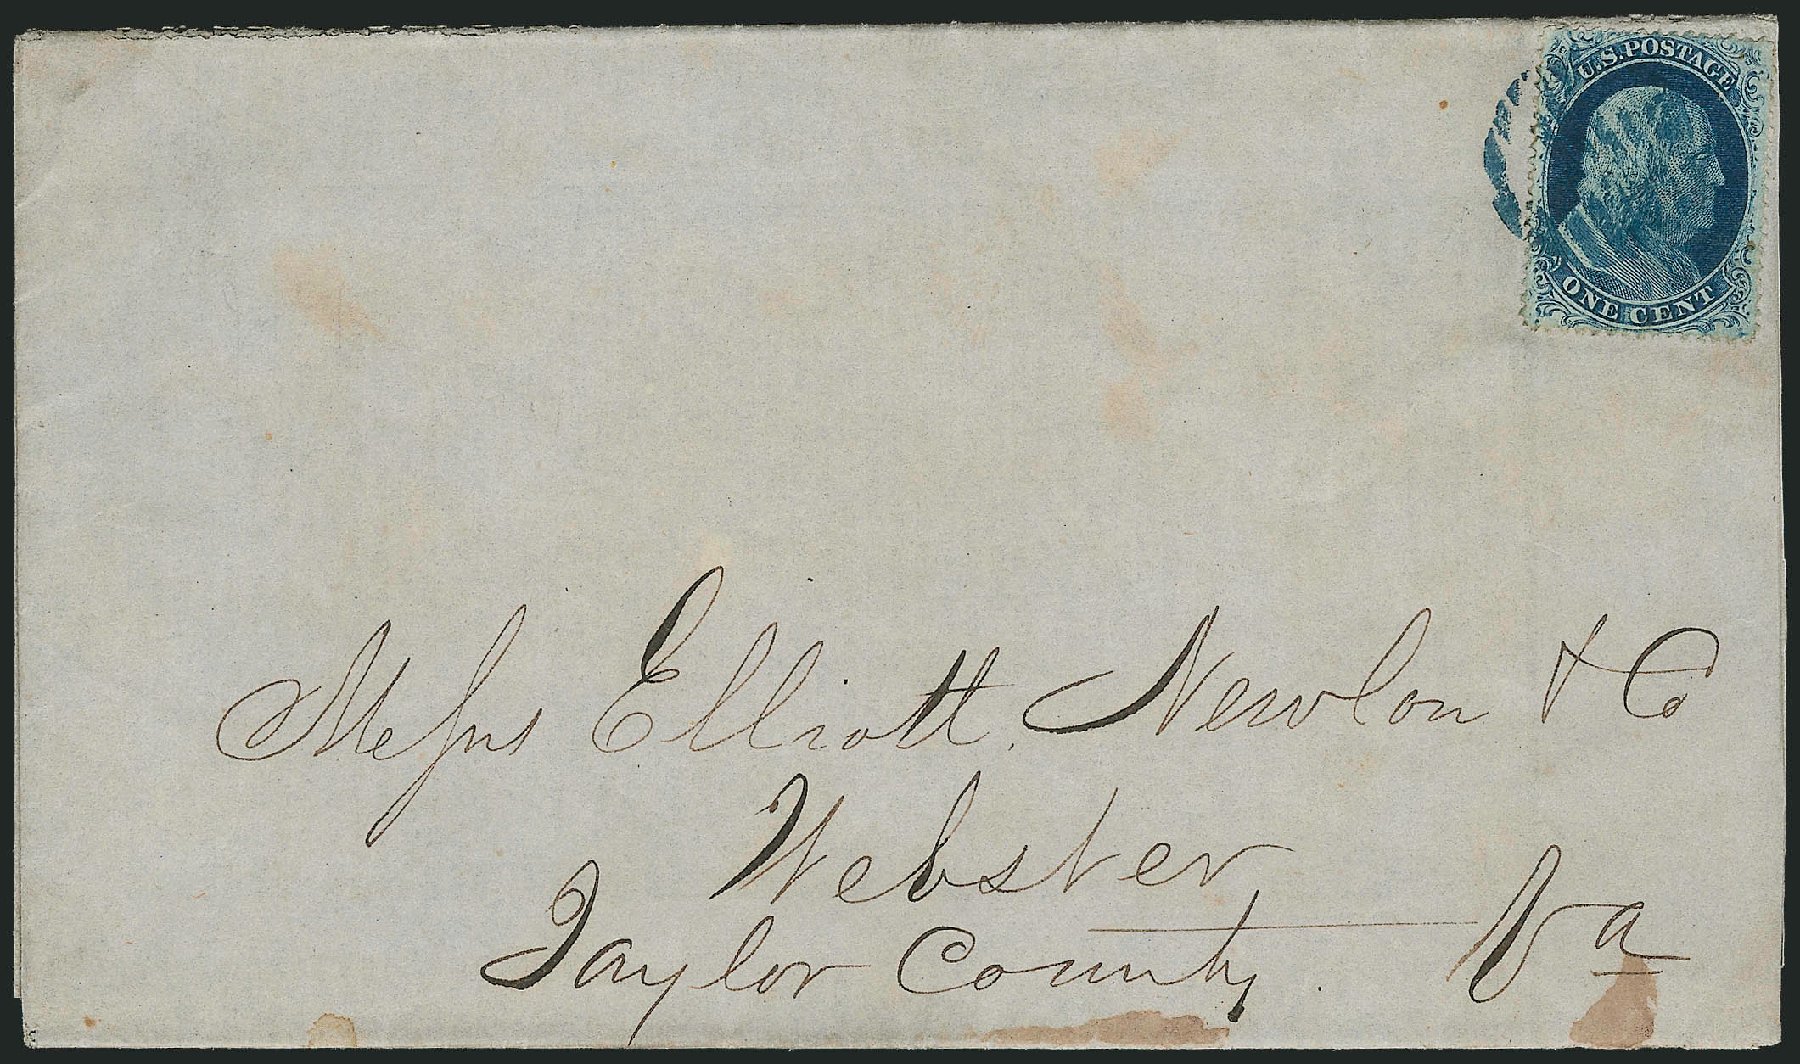 U.S. POSTAGE
ONE CENT
Meſsrs Elliott, Newlon & Co
Webster
Taylor County Va